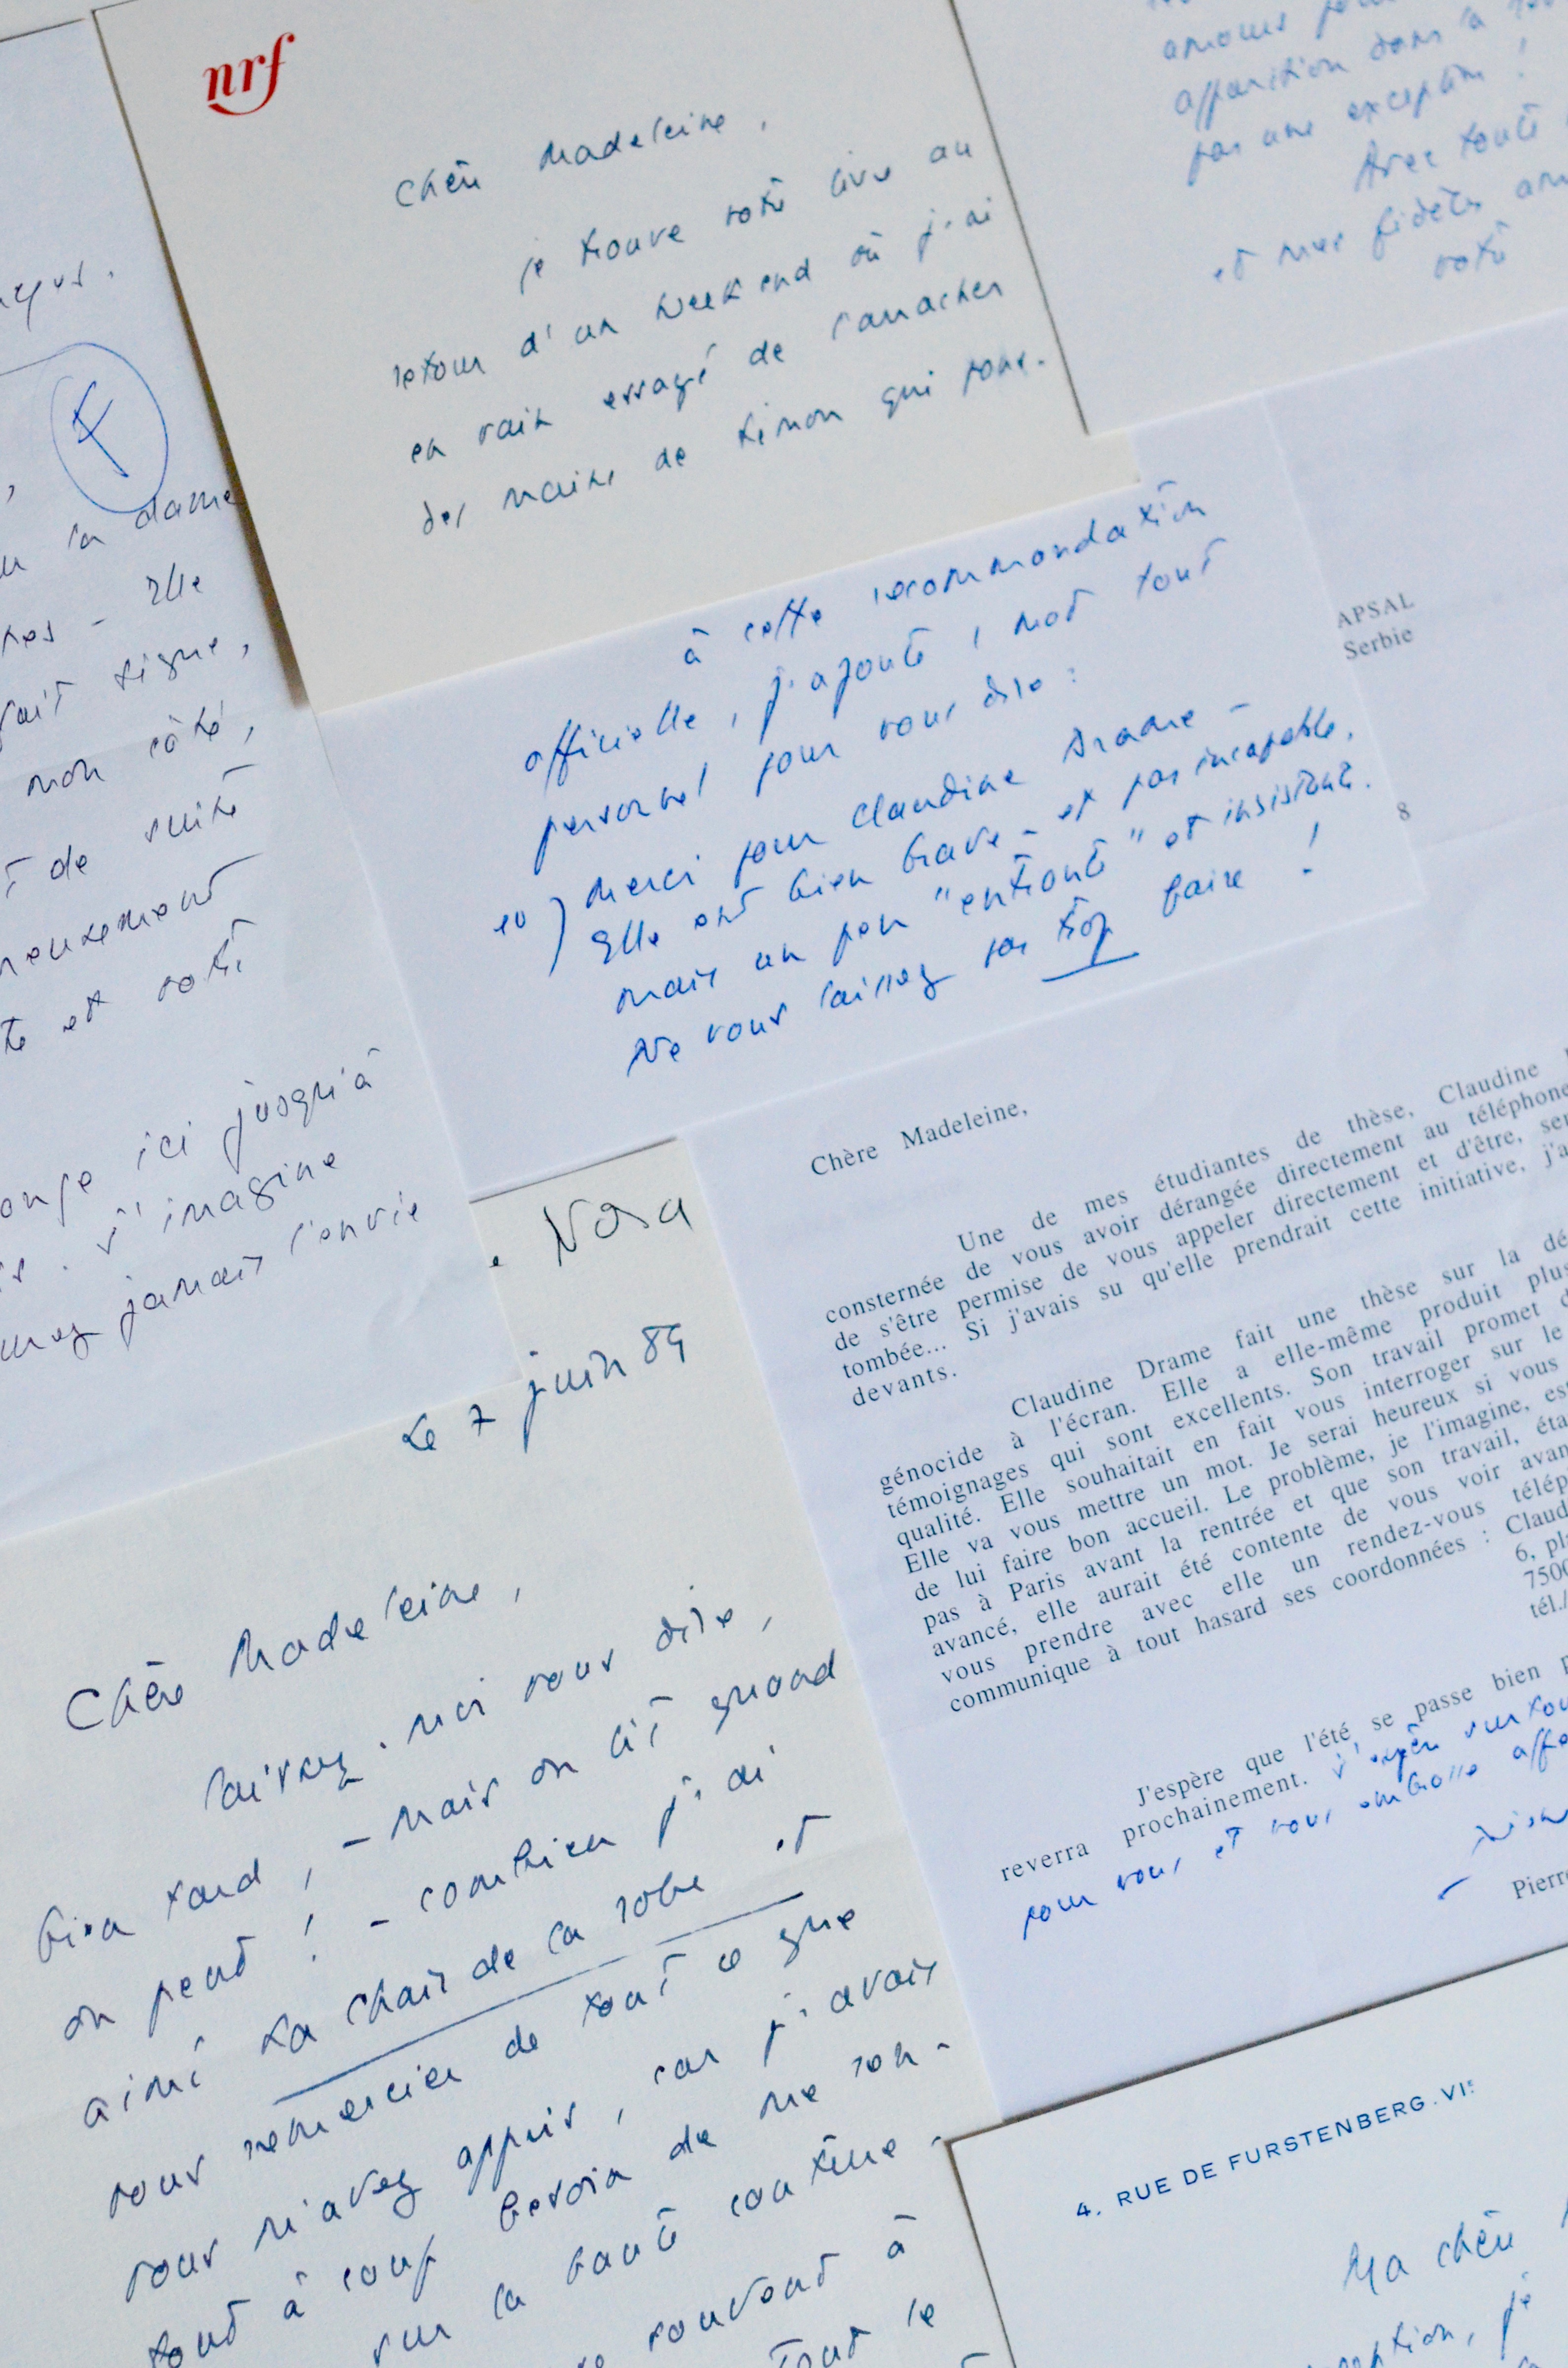 nrf
Chère Madeleine,
je trouve votre livre au
retour d'un week end où j'ai
en vain essayé de l'arracher
des mains de Simon qui pour-
amours pour
apparition dans la
pas une exception !
Avec toute
et mes fidèles
votre
F
la dame
Elle
fait signe,
mon côté,
de suite
et votre
ici jusqu'à
j'imagine
jamais l'envie
à cette recommandation
officielle, j'ajoute 1 mot tout
personnel pour vous dire :
Merci pour Claudine Drame -
Elle est bien brave - et pas incapable,
mais un peu "entrante" et insistante.
Ne vous laissez pas trop faire !
APSAL
Serbie
8
Chère Madeleine,
Une de mes étudiantes de thèse, Claudine
consternée de vous avoir dérangée directement au téléphone
de s'être permise de vous appeler directement et d'être,
tombée... Si j'avais su qu'elle prendrait cette initiative,
devants.
Claudine Drame fait une thèse sur la
génocide à l'écran. Elle a elle-même produit
témoignages qui sont excellents. Son travail promet
qualité. Elle souhaitait en fait vous interroger sur le
Elle va vous mettre un mot. Je serai heureux si vous
de lui faire bon accueil. Le problème, je l'imagine,
pas à Paris avant la rentrée et que son travail,
avancé, elle aurait été contente de vous voir
vous prendre avec elle un rendez-vous
communique à tout hasard ses coordonnées :
6,
tél./
J'espère que l'été se passe bien
reverra prochainement. J'espère surtout
pour vous et vous embrasse
Pierre
Nora
Le 7 juin 89
Chère Madeleine,
laissez-moi vous dire,
bien tard, - mais on lit quand
on peut ! - combien j'ai
aimé La chair de la robe et
vous remercier de tout ce que
vous m'avez appris, car j'avais
tout à coup besoin de me ren-
sur la haute couture
souvent à
Tout le
4, RUE DE FURSTENBERG. VIe
Ma chère
je